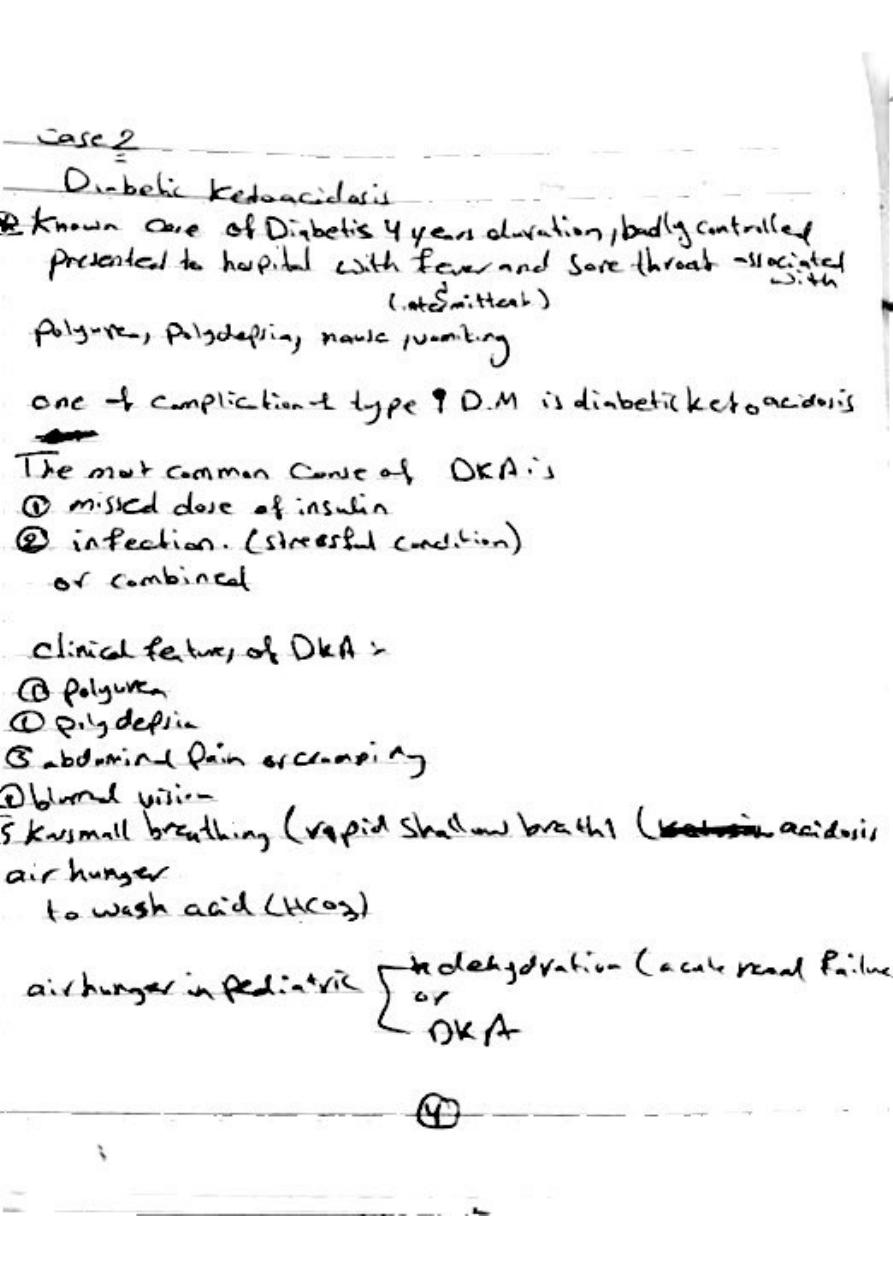 Case 2
Diabetic Ketoacidosis
Known case of Diabetis 4 years duration, badly controlled
presented to hospital with fever and sore throat associated with
(intermittent)
polyurea, polydepsia, nause, vomiting
one of complication of type 1 D.M is diabetic ketoacidosis
The most common cause of DKA is
① missed dose of insulin
② infection. (stressful condition)
or combined
clinical features of DKA :-
① polyurea
① polydepsia
③ abdominal pain or cramping
④ blurred vision
5 Kusmall breathing (rapid shallow breath) (acidosis
air hunger
to wash acid (HCO3)
air hunger in pediatric dehydration (acute renal failure
or
DKA
4